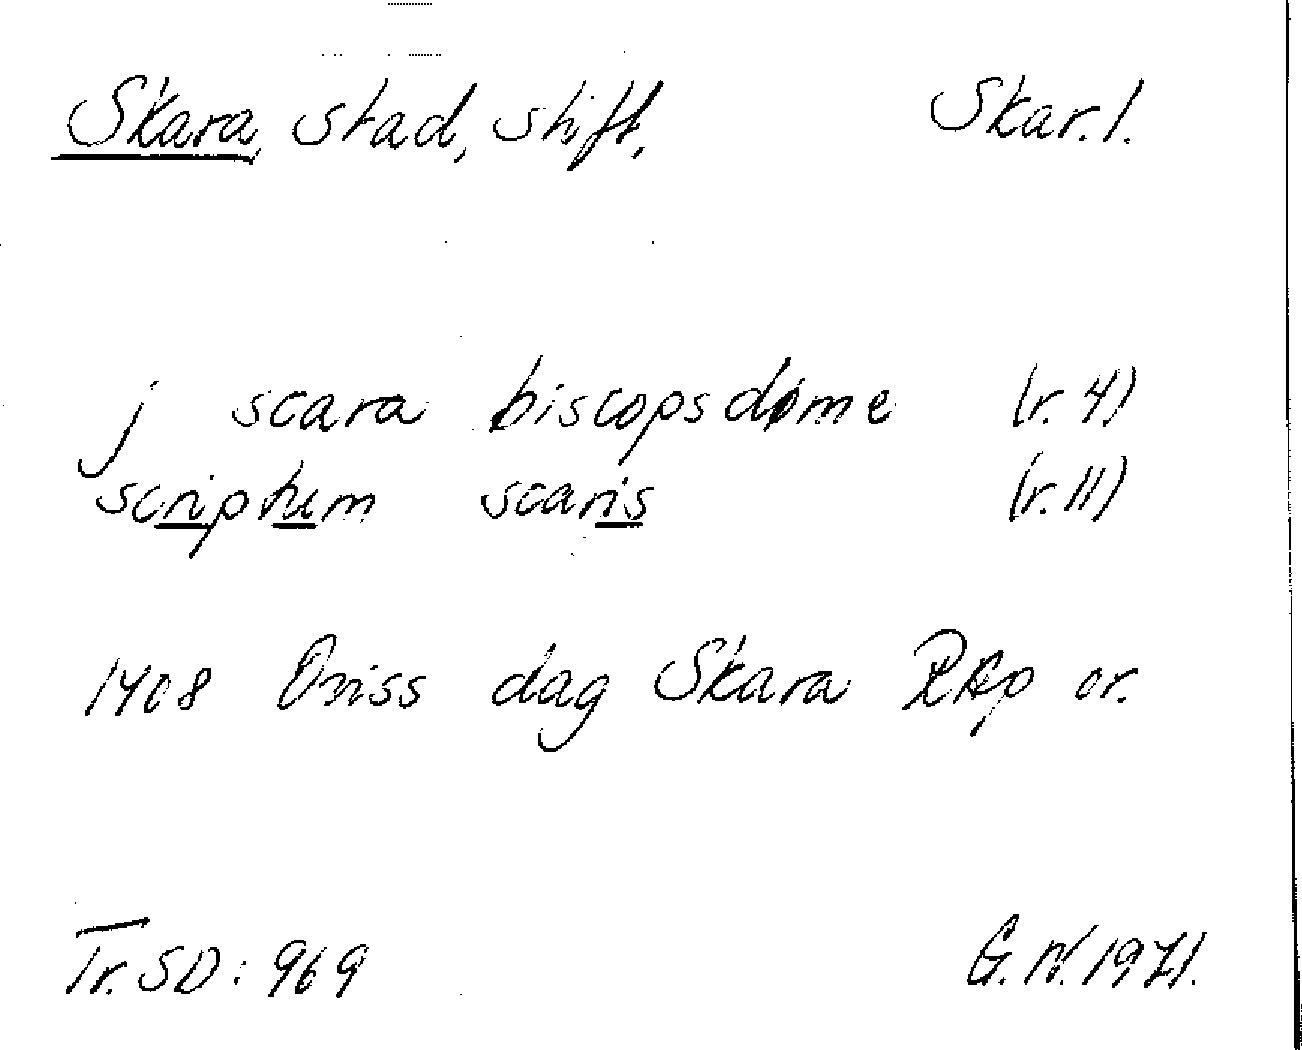 Skara, stad, stift, Skar. l.
j scara biscopsdøme (r. 4)
scriptum scaris (r. 11)
1408 Oviss dag Skara RAp or.
Tr. SD: 969 G.N. 1971.